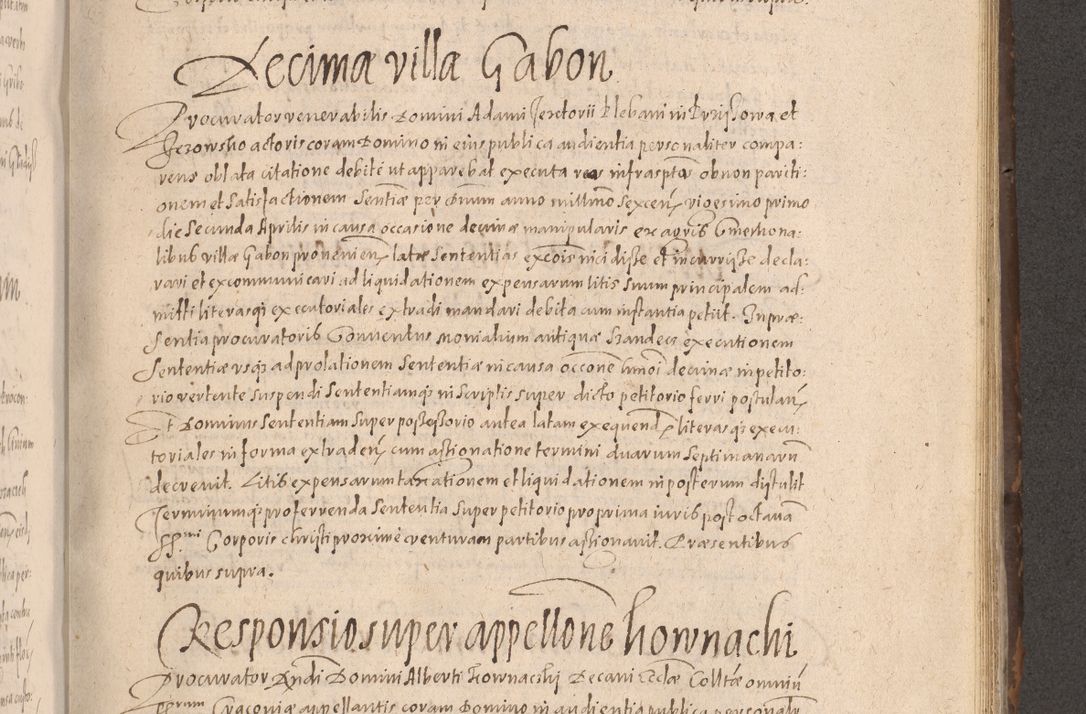 Decima villa Gabon
Procurator venerabilis Domini Adami Plebani in et
actoris coram Domino in eius publica audientia personaliter compa:
rens oblata citatione debitè ut apparebat executa infrasptos ob non pariti:
onem et satisfactionem Sentiae per Dnum anno millimo sexcen, vigesimo primo
die Secunda Aprilis in causa occasione decimae manipularis ex agris Cmethona:
libus villae Gabon provenien, latae Sententias excois incidisse et incurrisse decla:
rari et excommunicari ad liquidationem expensarum litis suum principalem ad:
mitti literasq; executoriales extradi mandari debita cum instantia petiit. In prae:
sentia procuratoris Conventus monialium antiquae Sandecz executionem
Sententiae usq; ad prolationem Sententiae in causa occone hmoi decimae in petito:
rio vertente suspendi Sententiamq; in Scriptis super dicto petitorio ferri postulan,
Et Dominus Sententiam super possessorio antea latam exequend, literasq; execu:
toriales in forma extraden, cum assignatione termini duarum Septimanarum
decrevit. Litis expensarum taxationem et liquidationem in posterum distulit
Terminumq; pro ferrenda Sententia super petitorio pro prima iuris post octavam
SSmi Corporis christi proximè venturam partibus assignavit. Praesentibus
quibus supra.
Responsio super appellone hownachi
Procurator Rndi Domini Alberti Hownachi Decani Ecclae Colltae omniu
Cracoviae appellantis coram Domino in audientia publica personalr